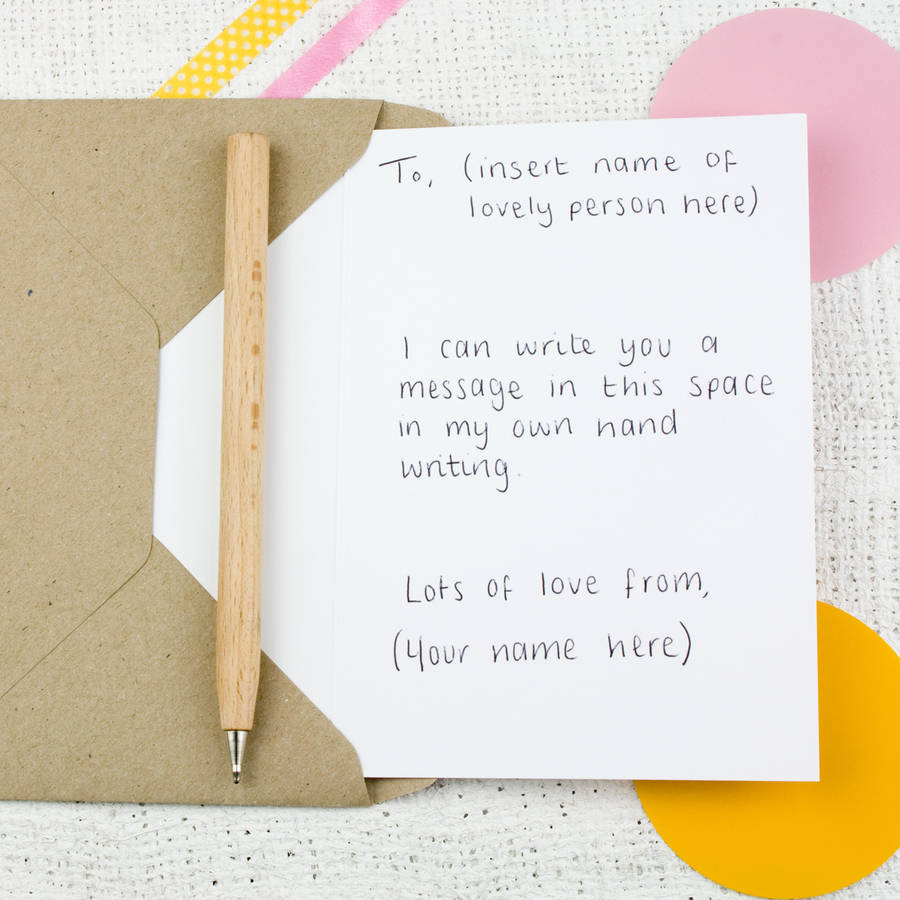 To, (insert name of
lovely person here)
I can write you a
message in this space
in my own hand
writing.
Lots of love from,
(Your name here)